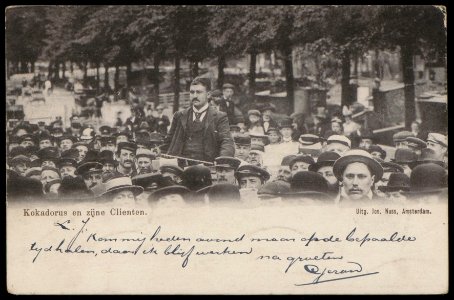 Kokadorus en zijne Clienten.
Uitg. Jos. Nuss, Amsterdam.
L. J.
Kom mij heden avond maar op de bepaalde
tijd halen, daar ik blijf werken na groeten
Gerard